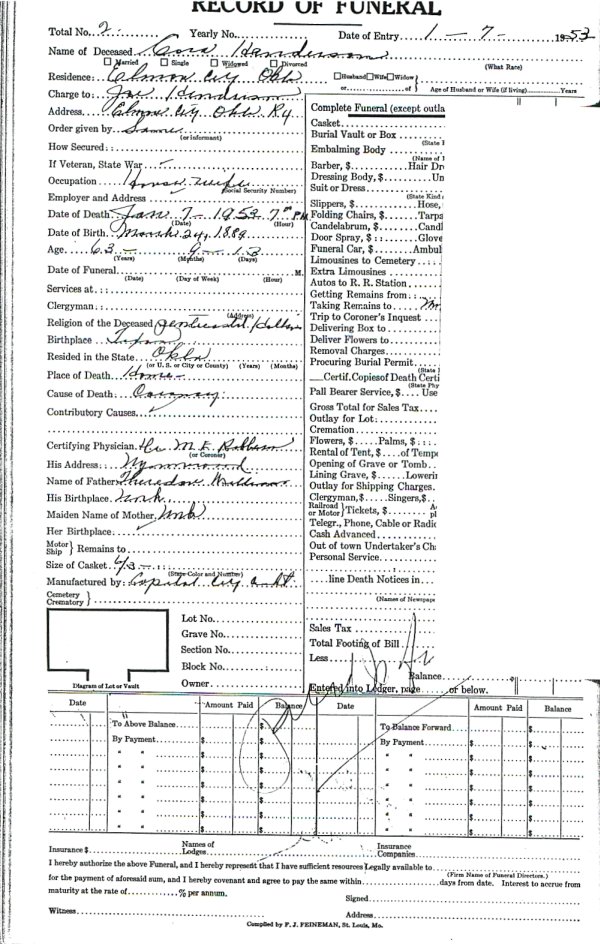 RECORD OF FUNERAL
Total No. 2 Yearly No. Date of Entry 1 - 7 - 1953
Name of Deceased Cora Henderson
Married Single Widowed Divorced (What Race)
Residence: Elmore City Okla Husband Wife Widow
or of Age of Husband or Wife (if living) Years
Charge to: Joe Henderson
Address Elmore City Okla
Order given by Same
(or informant)
How Secured:
If Veteran, State War -
Occupation House Wife
(Social Security Number)
Employer and Address
Date of Death Jan 7 - 1953 7 P M.
(Date) (Hour)
Date of Birth March 24, 1889
Age 63 - 9 - 13
(Years) (Months) (Days)
Date of Funeral M.
(Date) (Day of Week) (Hour)
Services at:
(Address)
Clergyman:
Religion of the Deceased
Birthplace
Resided in the State Okla
(or U. S. or City or County) (Years) (Months)
Place of Death Home
Cause of Death
Contributory Causes
Certifying Physician Dr M E Robberson
(or Coroner)
His Address Wynnewood
Name of Father Williams
His Birthplace Unk
Maiden Name of Mother Unk
Her Birthplace
Motor Ship } Remains to
Size of Casket 6/3 -
(State Color and Number)
Manufactured by: Capitol City
Cemetery Crematory }
Lot No.
Grave No.
Section No.
Block No.
Owner
Diagram of Lot or Vault
Complete Funeral (except outla
Casket
Burial Vault or Box
(State
Embalming Body
(Name of
Barber, $ Hair Dr
Dressing Body, $ Un
Suit or Dress
(State Kind
Slippers, $ Hose,
Folding Chairs, $ Tarpa
Candelabrum, $ Candl
Door Spray, $ Glove
Funeral Car, $ Ambul
Limousines to Cemetery
Extra Limousines
Autos to R. R. Station
Getting Remains from:
Taking Remains to
Trip to Coroner's Inquest
Delivering Box to
Deliver Flowers to
Removal Charges
Procuring Burial Permit
(State
Certif. Copies of Death Certi
(State Phy
Pall Bearer Service, $ Use
Gross Total for Sales Tax
Outlay for Lot:
Cremation
Flowers, $ Palms, $
Rental of Tent, $ of Tempo
Opening of Grave or Tomb
Lining Grave, $ Loweri
Outlay for Shipping Charges
Clergyman, $ Singers, $
Railroad or Motor } Tickets, $ A
pl
Telegr., Phone, Cable or Radio
Cash Advanced
Out of town Undertaker's Ch
Personal Service
line Death Notices in
(Names of Newspape
Sales Tax
Total Footing of Bill
Less
Balance
Entered into Ledger, page or below.
Paid
Date Amount Paid Balance Date Amount Paid Balance
To Above Balance $ To Balance Forward $
By Payment $ $ By Payment $ $
" " $ $ " " $ $
" " $ $ " " $ $
" " $ $ " " $ $
" " $ $ " " $ $
" " $ $ " " $ $
Insurance $ Names of Lodges Insurance Companies
I hereby authorize the above Funeral, and I hereby represent that I have sufficient resources legally available to
(Firm Name of Funeral Directors.)
for the payment of aforesaid sum, and I hereby covenant and agree to pay the same within days from date. Interest to accrue from
maturity at the rate of % per annum.
Signed
Witness Address
Compiled by F. J. FEINEMAN, St. Louis, Mo.